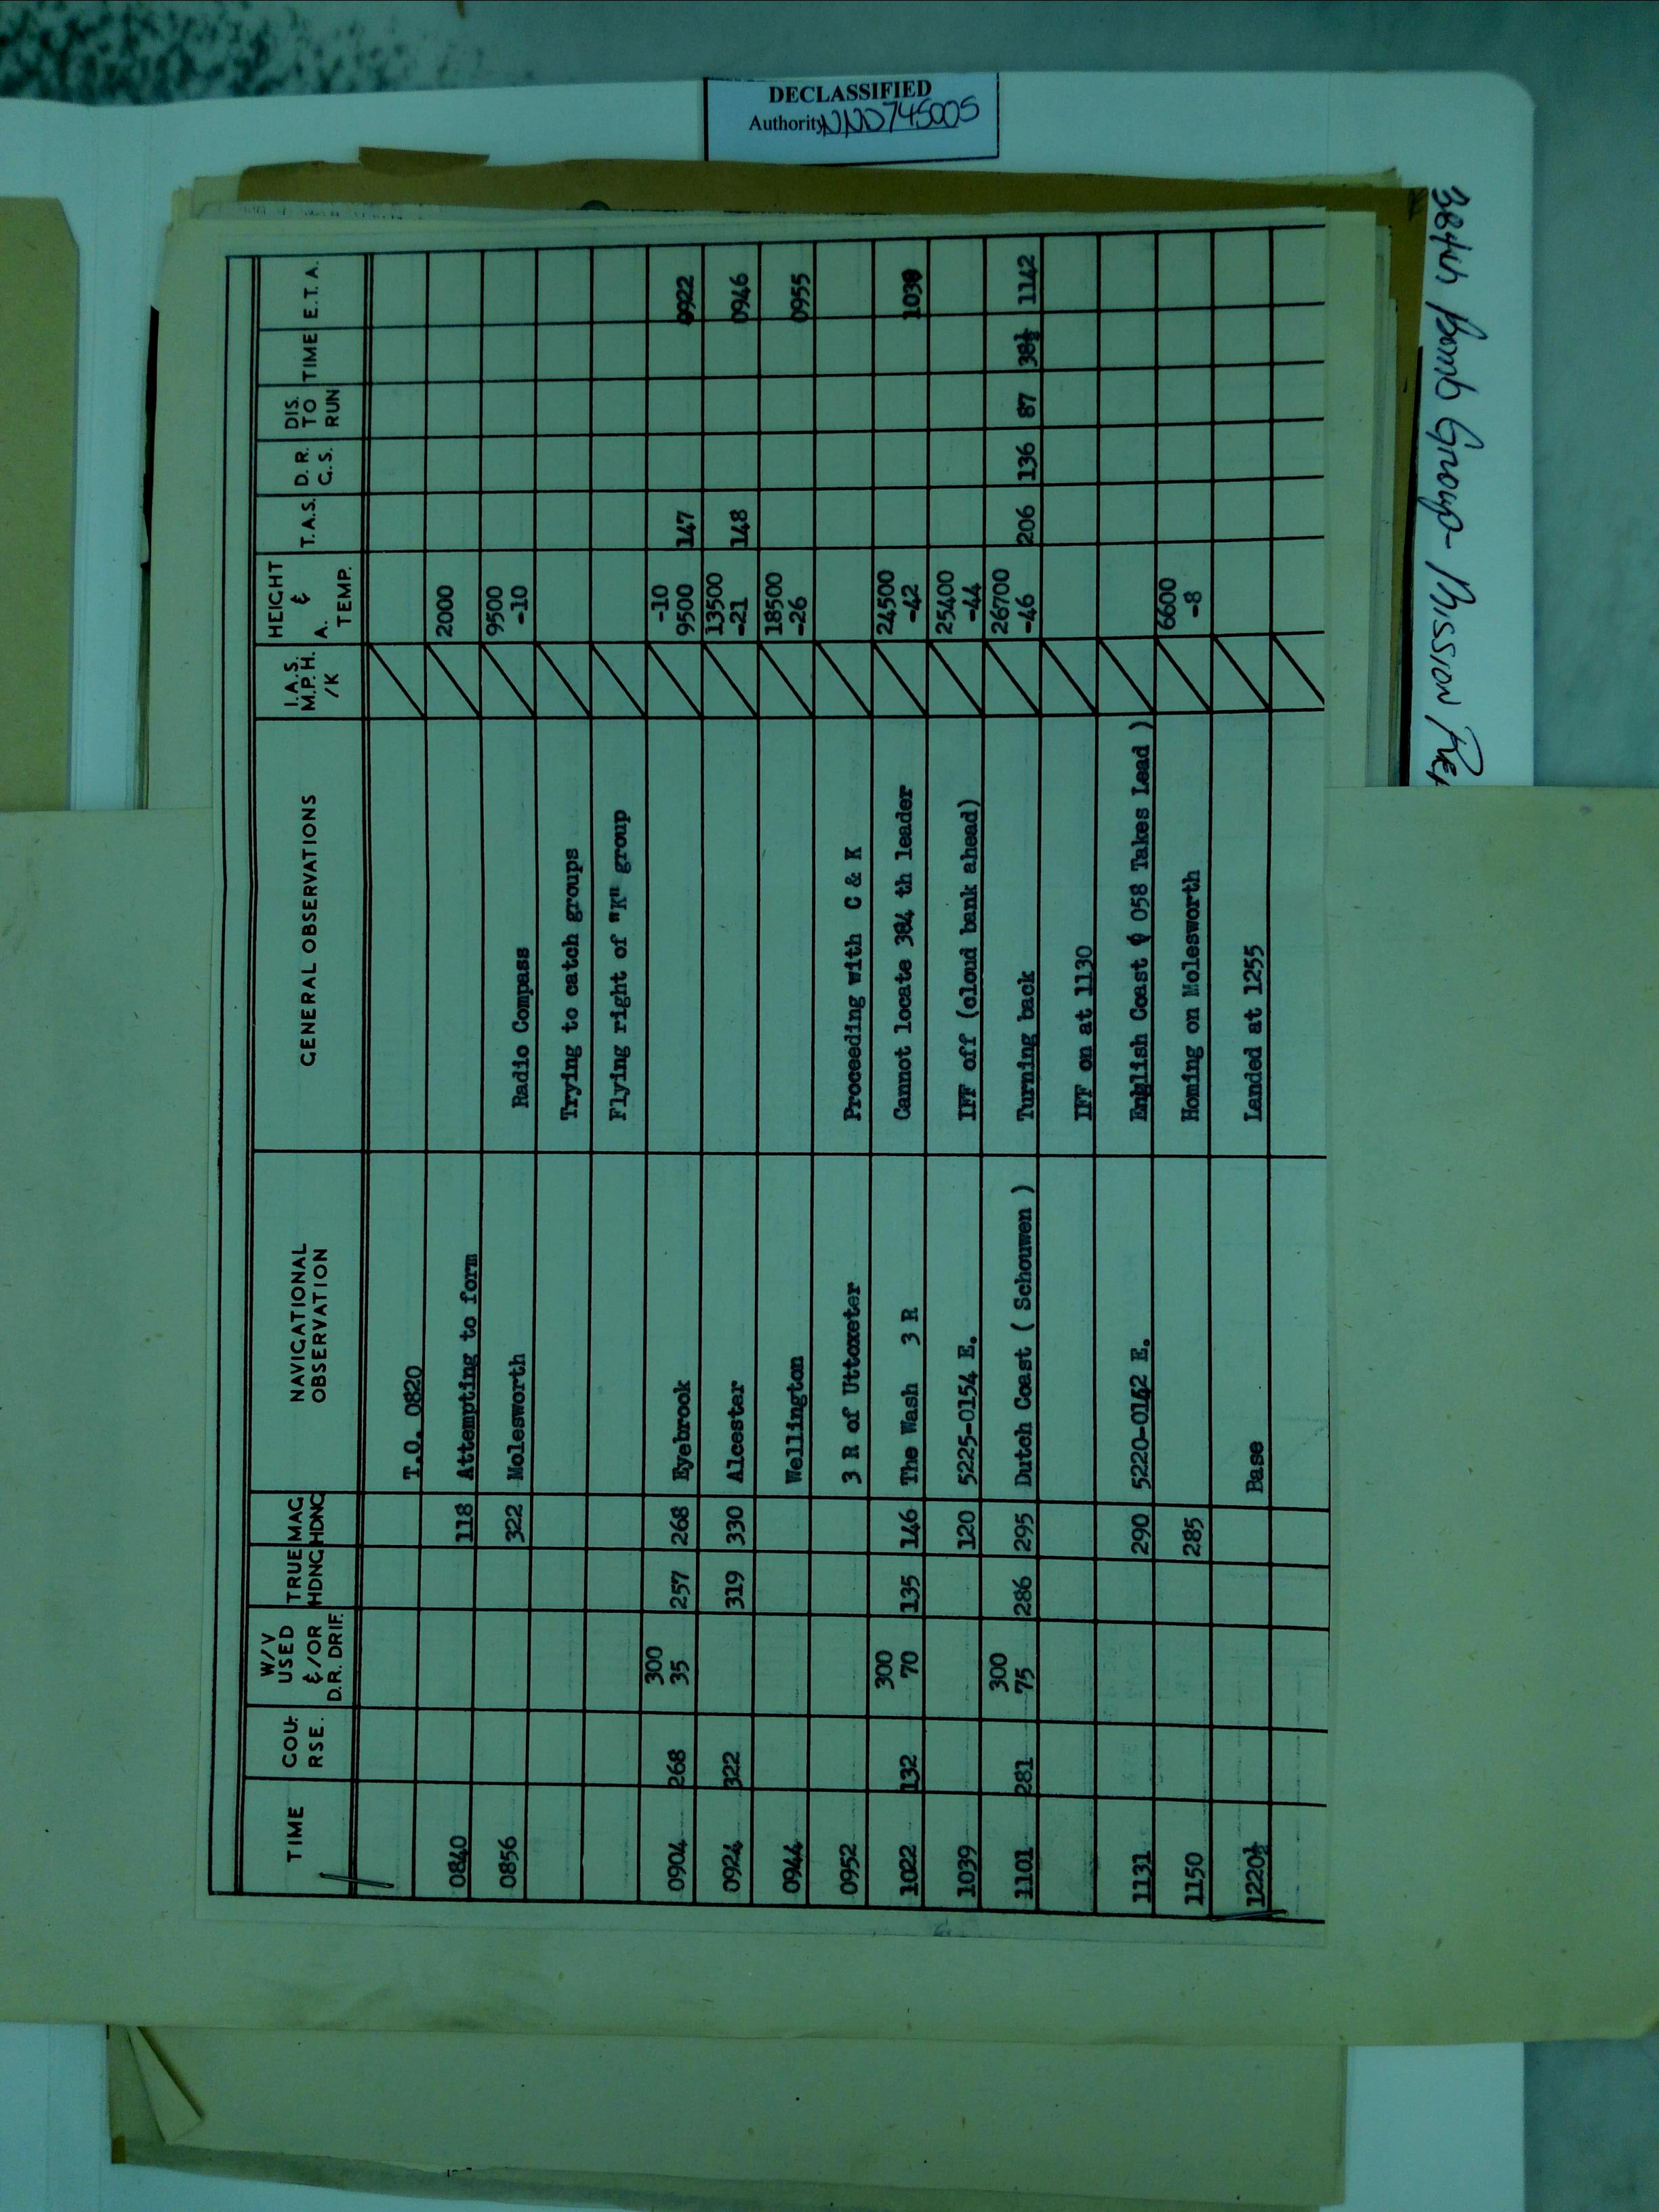 DECLASSIFIED
Authority NND745005
384th Bomb Group - Mission
TIME COU-RSE. W/V USED &/OR D.R. DRIF. TRUE HDNG MAG HDNG NAVIGATIONAL OBSERVATION GENERAL OBSERVATIONS I.A.S. M.P.H. /K HEIGHT A. & TEMP. T.A.S. D.R. G.S. DIS. TO RUN TIME E.T.A.
T.O. 0820
0840 118 Attempting to form 2000
0856 322 Molesworth Radio Compass 9500 -10
Trying to catch groups
Flying right of "K" group
0904 268 300 35 257 268 Eyebrook -10 9500 147 0922
0924 322 319 330 Alcester 13500 -21 148 0946
0944 Wellington 18500 -26 0955
0952 3 R of Uttoxeter Proceeding with C & K
1022 132 300 70 135 146 The Wash 3 R Cannot locate 384 th leader 24500 -42
1039 120 5225-0154 E. IFF off (cloud bank ahead) 25400 -44
1101 281 300 75 286 295 Dutch Coast ( Schouwen ) Turning back 26700 -46 206 136 87 38½ 1142
IFF on at 1130
1131 290 5220-0142 E. English Coast 058 Takes Lead )
1150 285 Homing on Molesworth 6600 -8
1220½ Base Landed at 1255